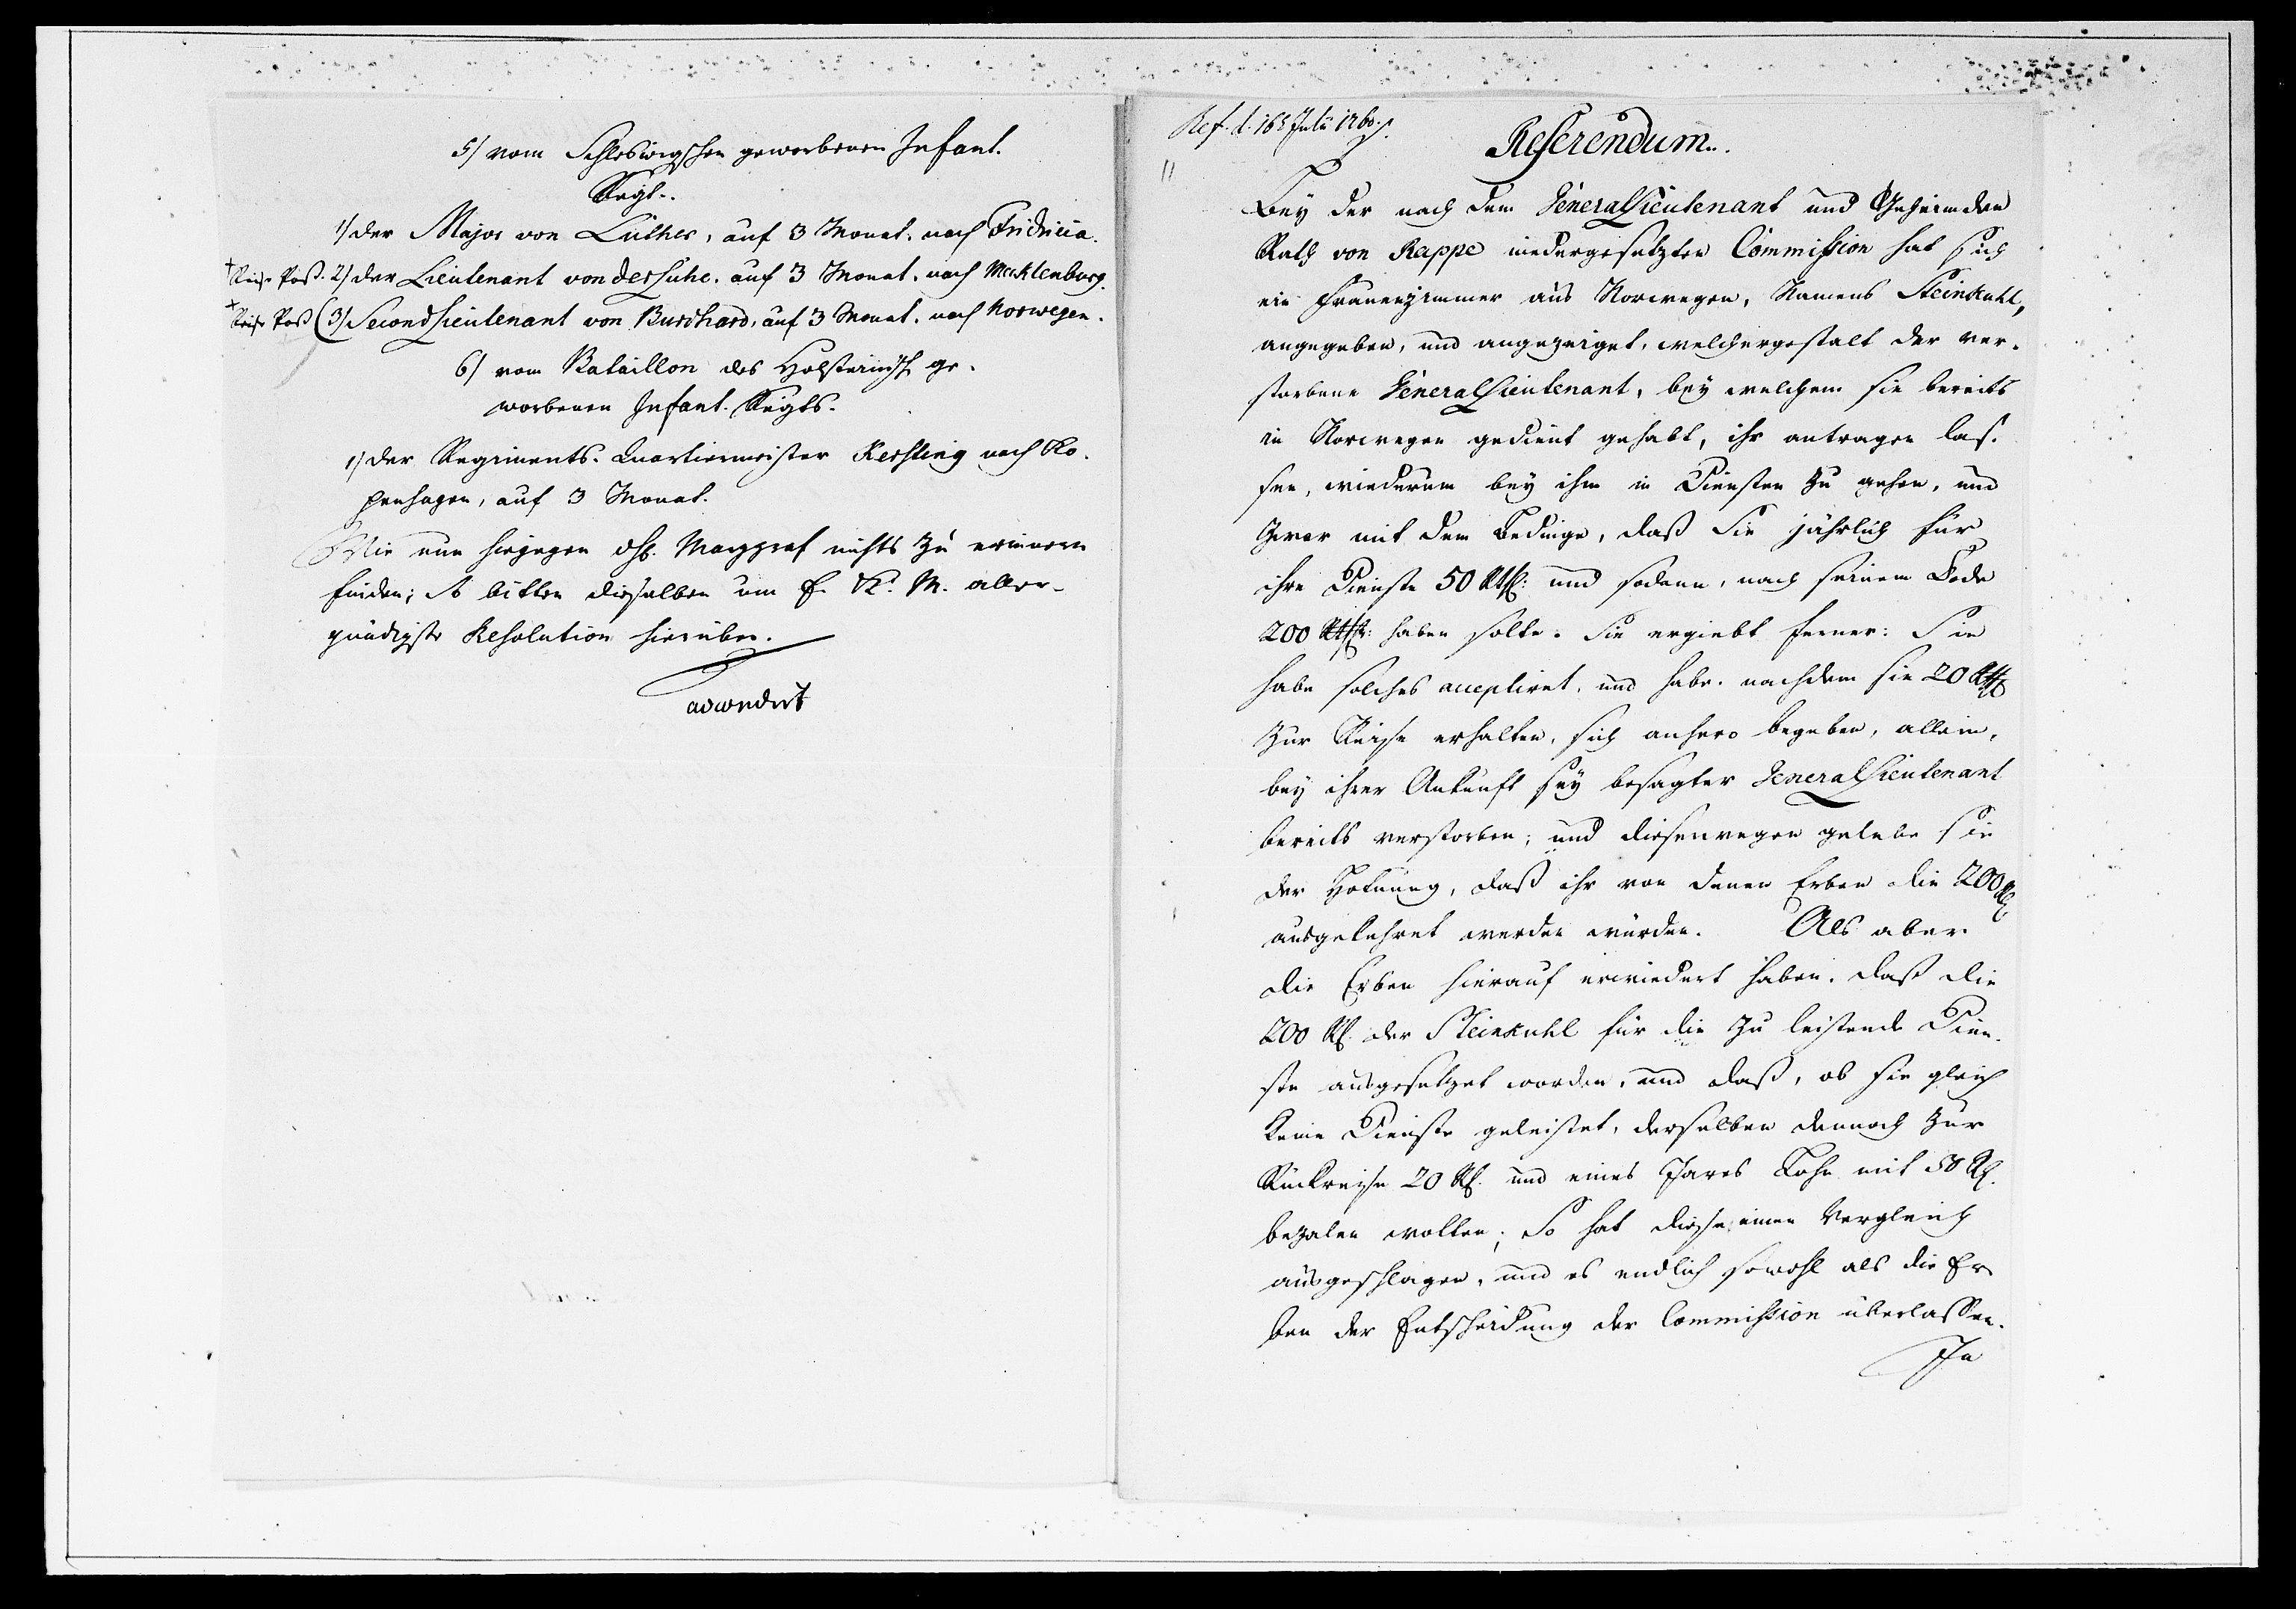 5/ vom Schleswigschen geworbenen Infant.
Regt..
1/ der Major von Lüther, auf 3 Monat. nach Fridricia.
† Reise Paß. 2/ der Lieutenant von der Lühe. auf 3 Monat. nach Mecklenburg.
† Reise Paß (3/ Second Lieutenant von Burchard, auf 3 Monat. nach Norwegen.
6/ vom Bataillon des Holsteinisch ge-
worbenen Infant. Regts.
1/ der Regiments-Quartiermeister Kersting nach Ko-
penhagen, auf 3 Monat.
Wie nun hiegegen Hr. Marggraf nichts zu erinnern
finden; So bitten dieselben um E. K. M. aller-
gnädigste Resolution hierüber.
approbirt
Ref. d. 16t July 1760.
11
Referendum.
Bey der nach dem General Lieutenant und Geheimden
Rath von Rappe niedergesetzten Commission hat sich
ein Frauenzimmer aus Norwegen, Namens Steinkuhl,
angegeben, und angezeiget, welchergestalt der ver-
storbene General Lieutenant, bey welchem sie bereits
in Norwegen gedient gehabt, ihr antragen las-
sen, wiederum bey ihm in Diensten zu gehen, und
zwar mit dem Bedinge, daß Sie jährlich für
ihre Dienste 50 Rthlr: und sodann, nach seinem Tode
200 Rthlr: haben solte. Sie ergiebt ferner: Sie
habe solches acceptiret, und habe. nachdem sie 20 Rthlr
zur Reise erhalten, sich anhero begeben, allein,
bey ihrer Ankunft sey besagter General Lieutenant
bereits verstorben; und dieserwegen gelebe sie
der Hofnung, daß ihr von denen Erben die 200 Rthlr
ausgekehret werden würden. Als aber
die Erben hierauf erwiedert haben. daß die
200 Rthlr. der Steinkuhl für die zu leistende Dien-
ste ausgesetzet worden, und daß, ob sie gleich
keine Dienste geleistet, derselben dennoch zur
Rückreise 20 Rthlr. und eines Jares Lohn mit 50 Rthlr.
bezalen wolten; So hat diese einen Vergleich
ausgeschlagen, und es endlich sowohl als die Er-
ben der Entscheidung der Commission überlassen.
In